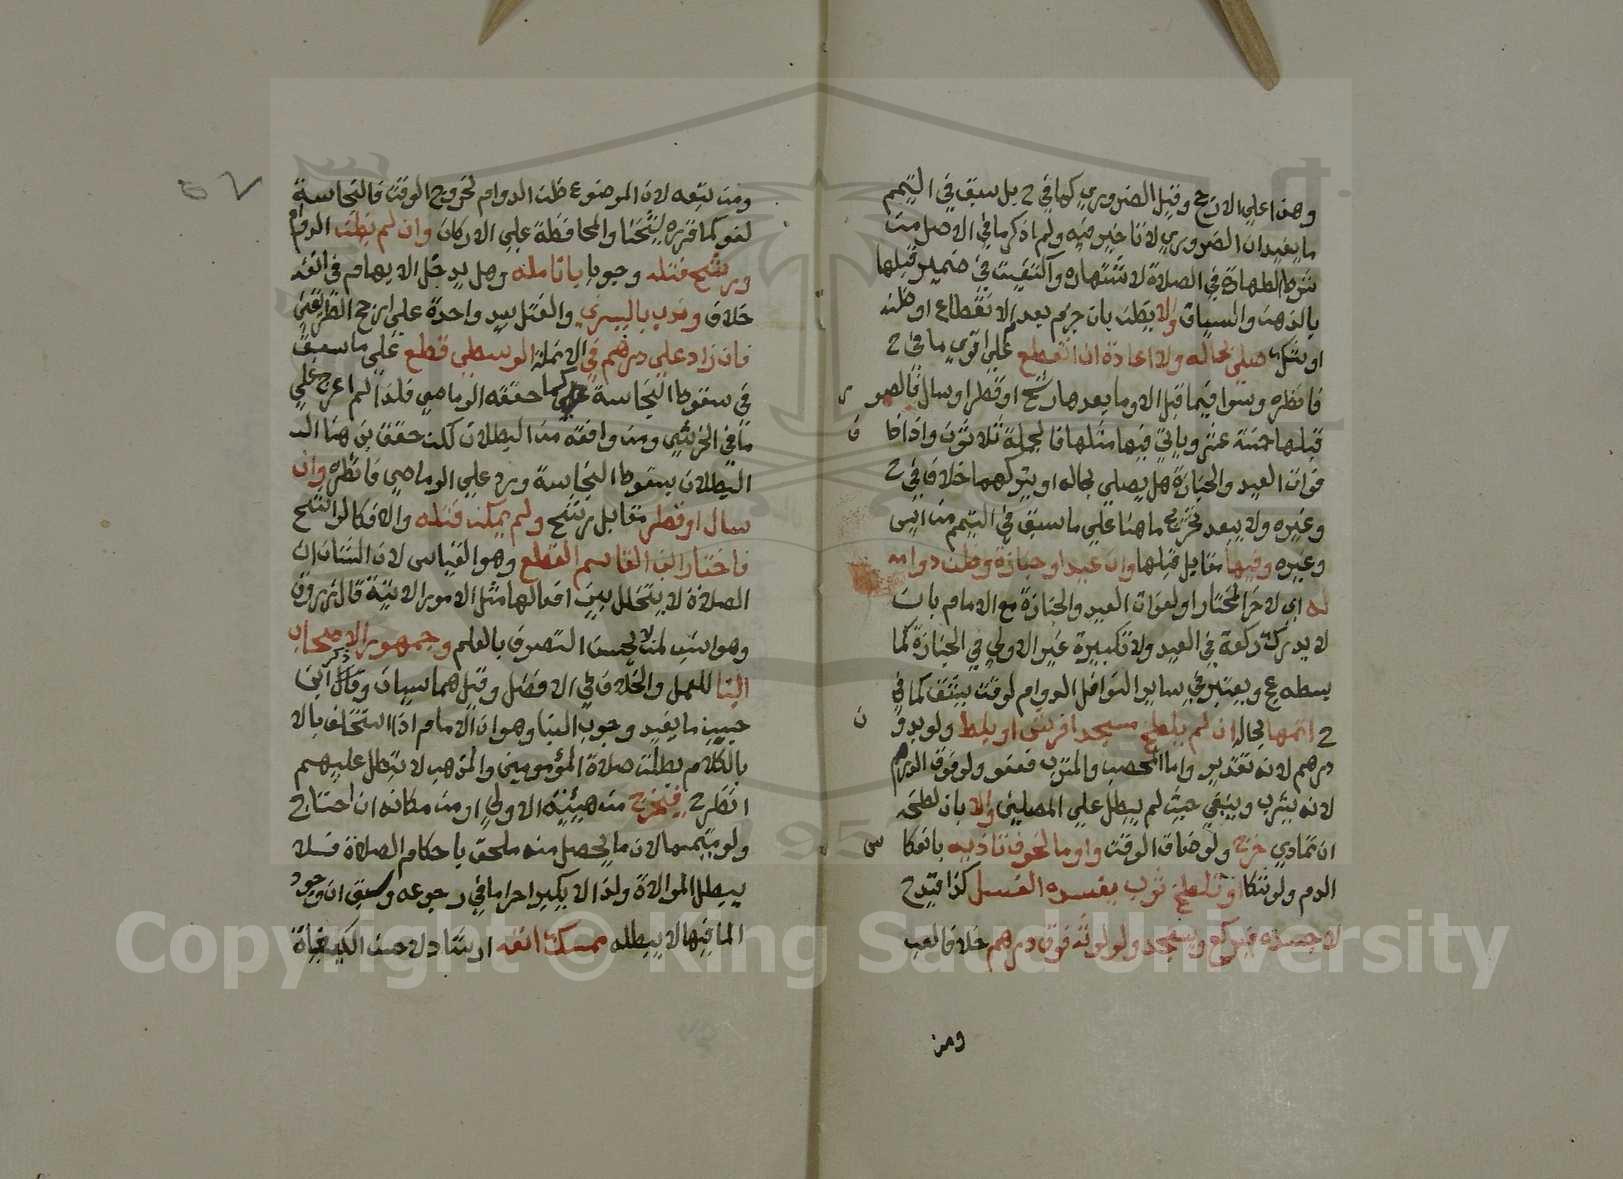 وهذا علي الارجح وقيل الضروري كما في ح بل سبق في التيمم
ما يفيد ان الضروري لا تاخير فيه ولم اذكر ما في الاصل من
شرط الطهارة في الصلاة لاشتهاره واكتفيت في ضمير قبلها
بالذهن والسياق والا يظن بان جزم بعدم الانقطاع او ظنه
او شك صلي بحاله ولا اعادة ان انقطع علي اقوي ما في ح
فانظره وسوا فيما قبل الا وما بعدها رشح او قطر او سال فالصور
قبلها خمسة عشر وياتي فيها مثلها فالجملة ثلاثون واذا
فوات العيد والجنازة هل يصلي بحاله او يتركهما خلاف في ح
وغيره ولا يبعد تخريج ما هنا علي ما سبق في التيمم من
وغيره وفيها مقابل قبلها وان عيدا وجنازة وظن دوامه
له اي لاخر المختار او لفوات العيد والجنازة مع الامام بان
لا يدرك ركعة في العيد ولا تكبيرة غير الاولي في الجنازة كما
بسطه عج ويعتبر في ساير النوافل الدوام لوقت يشق كما في
ح اتمها بحاله ان لم يلطخ مسجد افرش او بلط ولو بدون
درهم لانه تقذير واما المحصب والمترب فعفو ولو فوق الدرهم
لانه يشرب وينبغي حيث لم يبطل علي المصلين والا بان لطخه
ان تمادي خرج ولو ضاق الوقت واوما لخوف تاذيه بانعكا
الدم ولو شكا او تلطخ ثوب يفسده الغسل كذا قيد ح
لا جسده فيركع ويسجد ولو لوثه فوق درهم خلافا لعب
ومن
ومن تبعه لان الموضوع ظن الدوام لخروج الوقت فالنجاسة
لغو كما قرره شيخنا والمحافظة علي الاركان وان لم يظن الدوام
ورشح فتله وجوبا بانامله وهل يدخل الابهام في انفه
خلاف وندب باليسري والفتل بيد واحدة علي ارجح الطريقتين
فان زاد علي درهم في الانملة الوسطي قطع علي ما سبق
في سقوط النجاسة كما حققه الرماصي فلذا لم اعرج علي
ما في الخرشي ومن وافقه من البطلان لكن حقق بن هنا ان
البطلان بسقوط النجاسة ورد علي الرماصي فانظره وان
سال او قطر مقابل رشح ولم يمكن فتله والا فكالراشح
فاختار ابن القاسم القطع وهو القياس لان الشان ان
الصلاة لا يتخلل بين افعالها مثل الامور الاتية قال زروق
وهو انسب لمن لا يحسن التصرف بالعلم وجمهور الاصحاب
البنا للعمل والخلاف في الافضل وقيل هما سيان وذكر ابن
حبيب ما يفيد وجوب البنا وهو ان الامام اذا استخلف بالا
بالكلام بطلت صلاة المؤمومين والمذهب لا تبطل عليهم
انظر ح فيخرج من هيئته الاولي او من مكانه ان احتاج
ولو متيمما لان ما يحصل منه ملحق باحكام الصلاة فلا
يبطل الموالاة ولذا لا يكبر احراما في رجوعه وسبق ان وجود
الما فيها لا يبطله ممسك انفه ارشاد لاحسن الكيفيات
Copyright © King Saud University